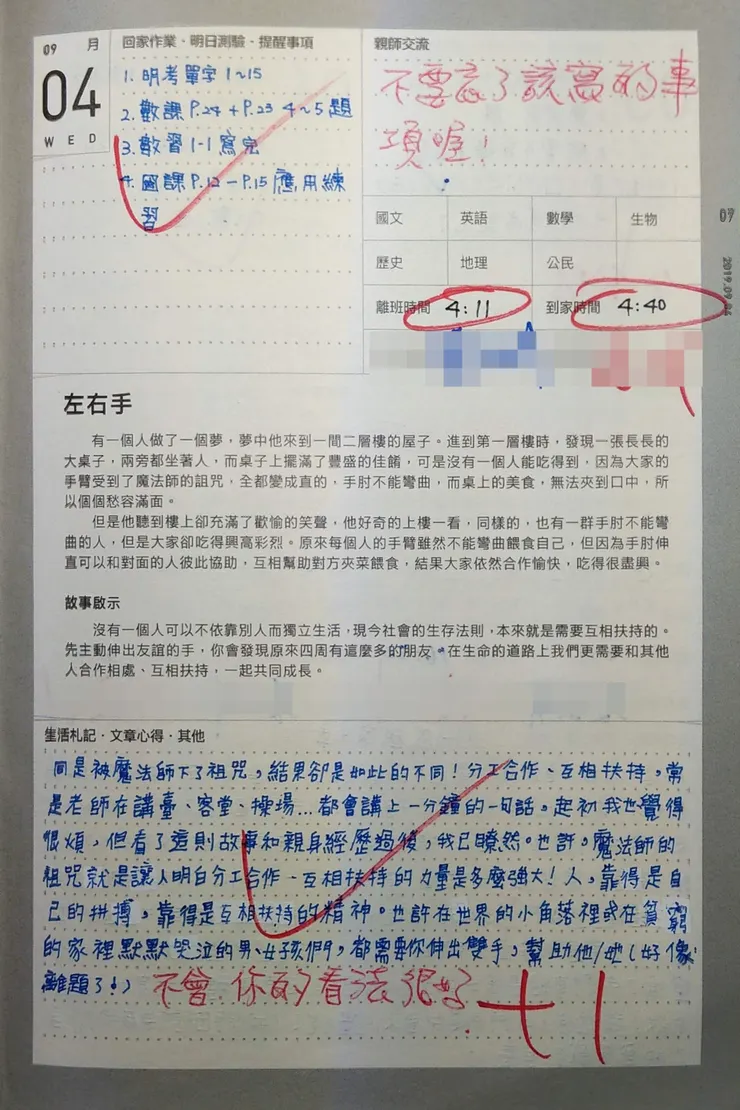 09 月
04
WED
回家作業、明日測驗、提醒事項
1. 明考單字 1~15
2. 數課 P.24 + P.23 4~5 題
3. 數習 1-1 寫完
4. 國課 P.12 – P.15 應用練
習
親師交流
不要忘了該寫的事
項喔!
國文 英語 數學 生物
歷史 地理 公民
離班時間 4:11 到家時間 4:40
07
2019.09.04
左右手
有一個人做了一個夢，夢中他來到一間二層樓的屋子。進到第一層樓時，發現一張長長的
大桌子，兩旁都坐著人，而桌子上擺滿了豐盛的佳餚，可是沒有一個人能吃得到，因為大家的
手臂受到了魔法師的詛咒，全都變成直的，手肘不能彎曲，而桌上的美食，無法夾到口中，所
以個個愁容滿面。
但是他聽到樓上卻充滿了歡愉的笑聲，他好奇的上樓一看，同樣的，也有一群手肘不能彎
曲的人，但是大家卻吃得興高彩烈。原來每個人的手臂雖然不能彎曲餵食自己，但因為手肘伸
直可以和對面的人彼此協助，互相幫助對方夾菜餵食，結果大家依然合作愉快，吃得很盡興。
故事啟示
沒有一個人可以不依靠別人而獨立生活，現今社會的生存法則，本來就是需要互相扶持的。
先主動伸出友誼的手，你會發現原來四周有這麼多的朋友。在生命的道路上我們更需要和其他
人合作相處、互相扶持，一起共同成長。
生活札記．文章心得．其他
同是被魔法師下了詛咒，結果卻是如此的不同！分工合作、互相扶持，常
是老師在講臺、客堂、操場...都會講上一分鐘的一句話。起初我也覺得
很煩，但看了這則故事和親身經歷過後，我已瞭然。也許，魔法師的
詛咒就是讓人明白分工合作、互相扶持的力量是多麼強大！人，靠得是自
己的拼搏，靠得是互相扶持的精神。也許在世界的小角落裡或在貧窮
的家裡默默哭泣的男、女孩們，都需要你伸出雙手，幫助他/她（好像
離題了！）
不會 你的看法很好
+1